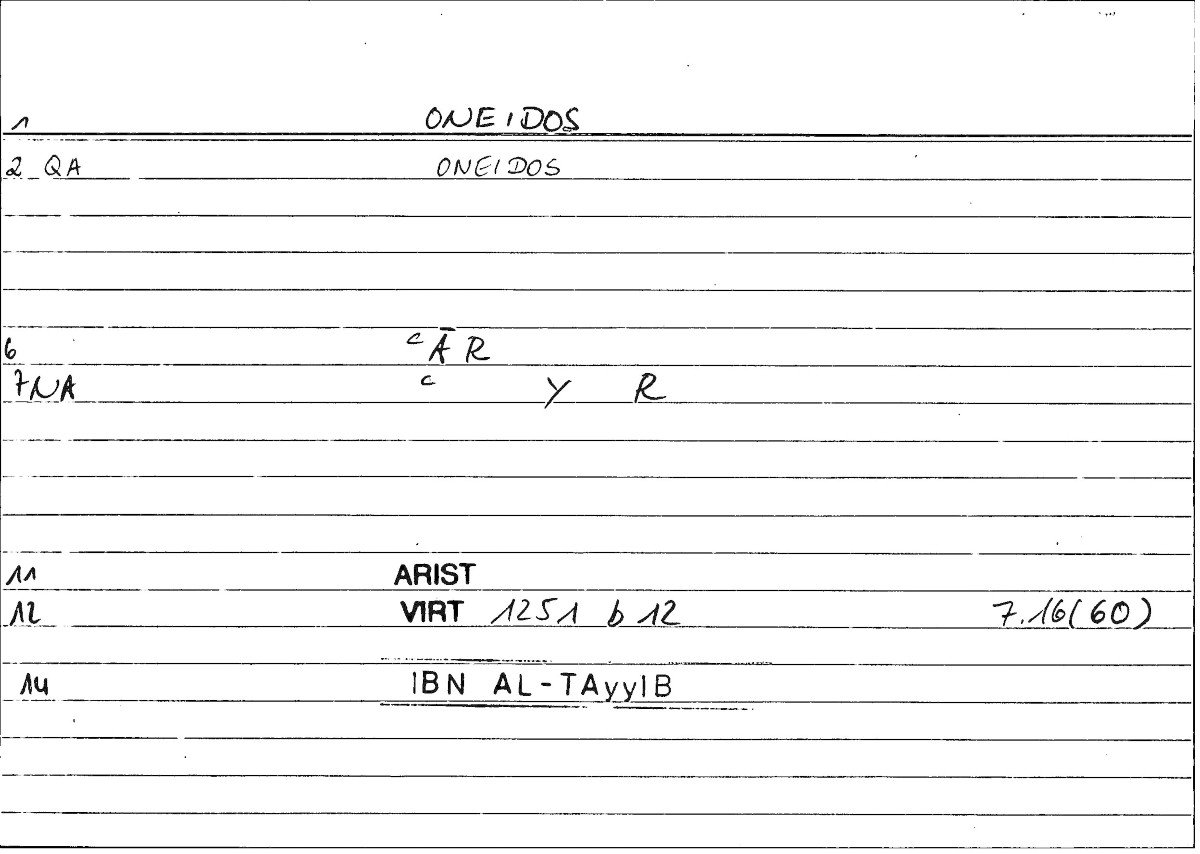 1 ONEIDOS
2 QA ONEIDOS
6 ᶜĀR
7 NA ᶜ Y R
11 ARIST
12 VIRT 1251 b 12 7.16(60)
14 IBN AL-TAyyIB